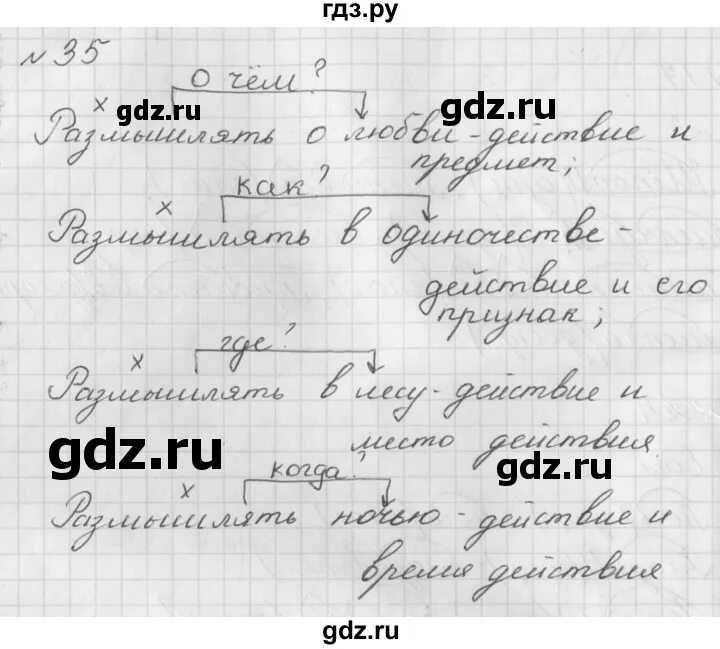 гдз.ру
№ 35
о чём?
х
gdz.ru
gdz.ru
Размышлять о любви - действие и
предмет;
как?
х
Размышлять в одиночестве -
действие и его
признак;
где?
х
Размышлять в лесу - действие и
место действия
gdz.ru
gdz.ru
когда?
х
Размышлять ночью - действие и
время действия
gdz.ru